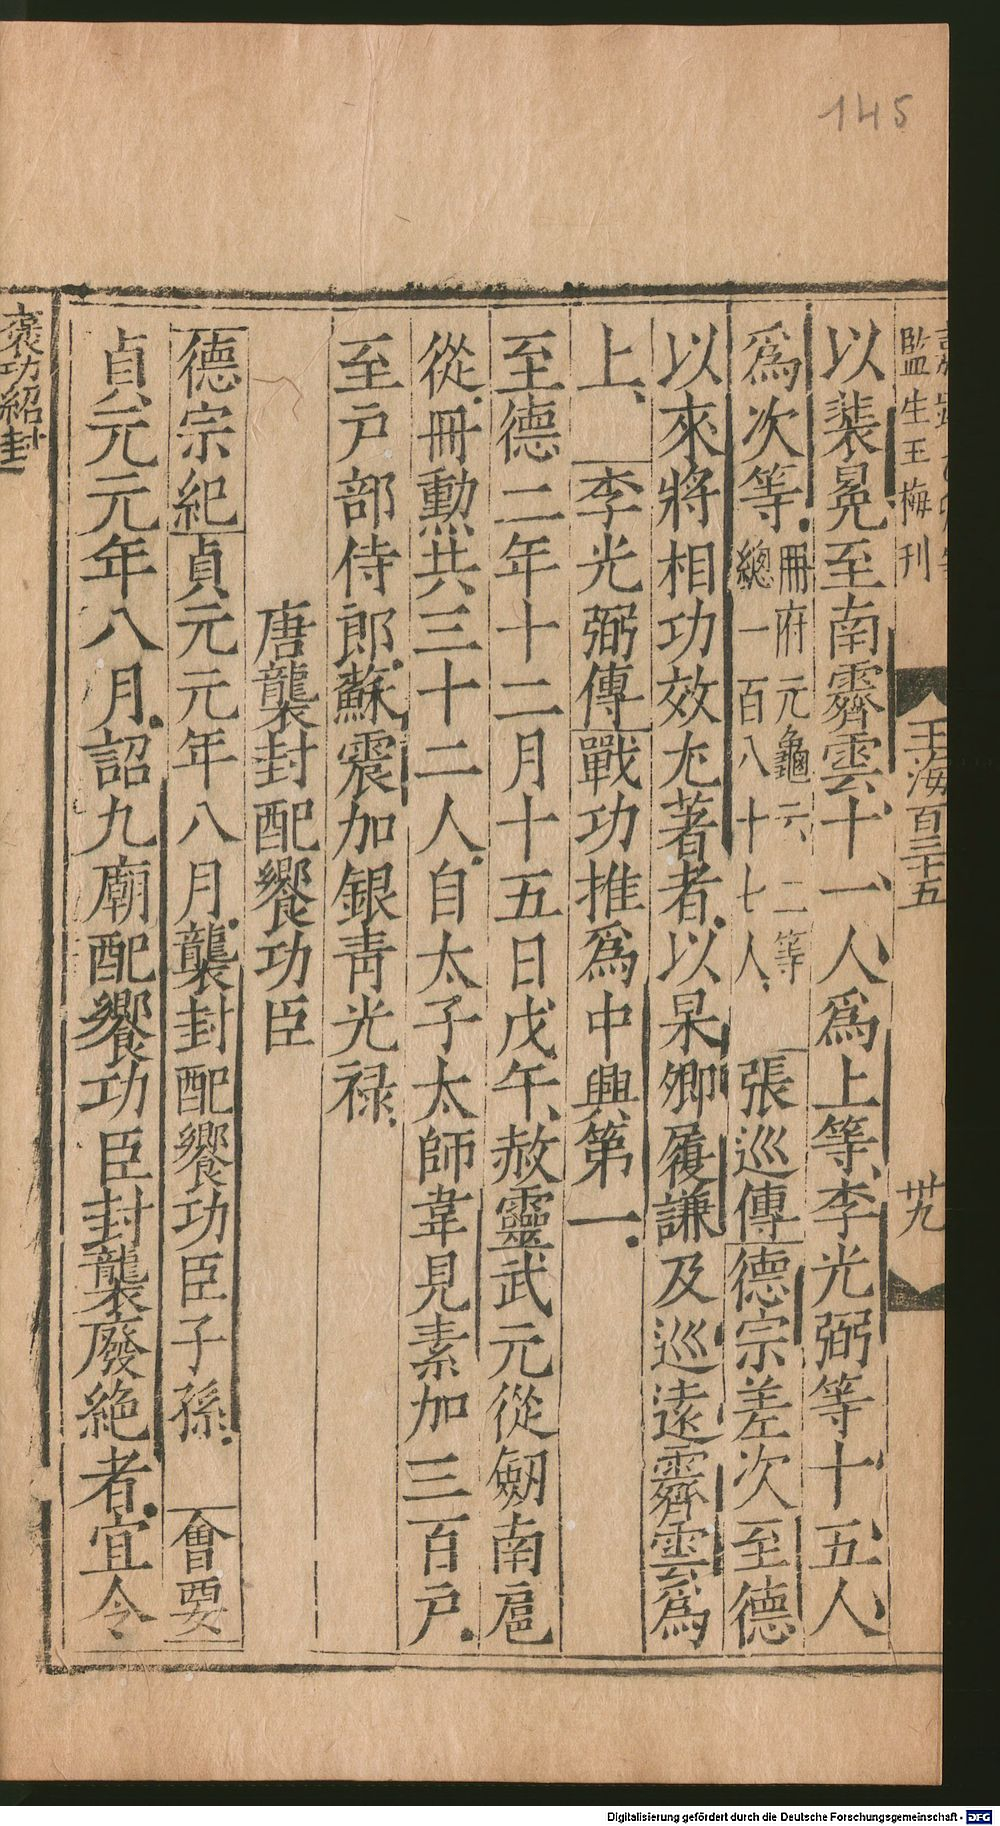 145
監生王梅刊
玉海百三十五
卅九
以裴冕至南霽雲十一人爲上等李光弼等十五人
爲次等冊府元龜六二等總一百八十七人張巡傳德宗差次至德
以來將相功效尤著者以杲卿履謙及巡遠霽雲爲
上李光弼傳戰功推爲中興第一
至德二年十二月十五日戊午赦靈武元從劔南扈
從冊勳共三十二人自太子太師韋見素加三百戶
至户部侍郎蘇震加銀青光祿
唐襲封配饗功臣
德宗紀貞元元年八月襲封配饗功臣子孫會要
貞元元年八月詔九廟配饗功臣封襲廢絶者宜令
褒功紹封
Digitalisierung gefördert durch die Deutsche Forschungsgemeinschaft - DFG